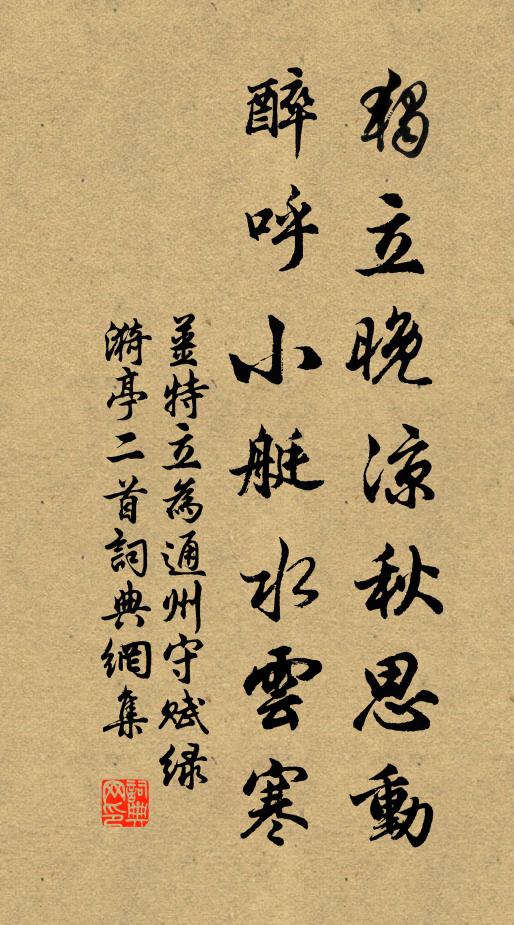 獨立晚涼秋思動
醉呼小艇水雲寒
姜特立為通州守賦緑
漪亭二首詞典網集
詞典网印